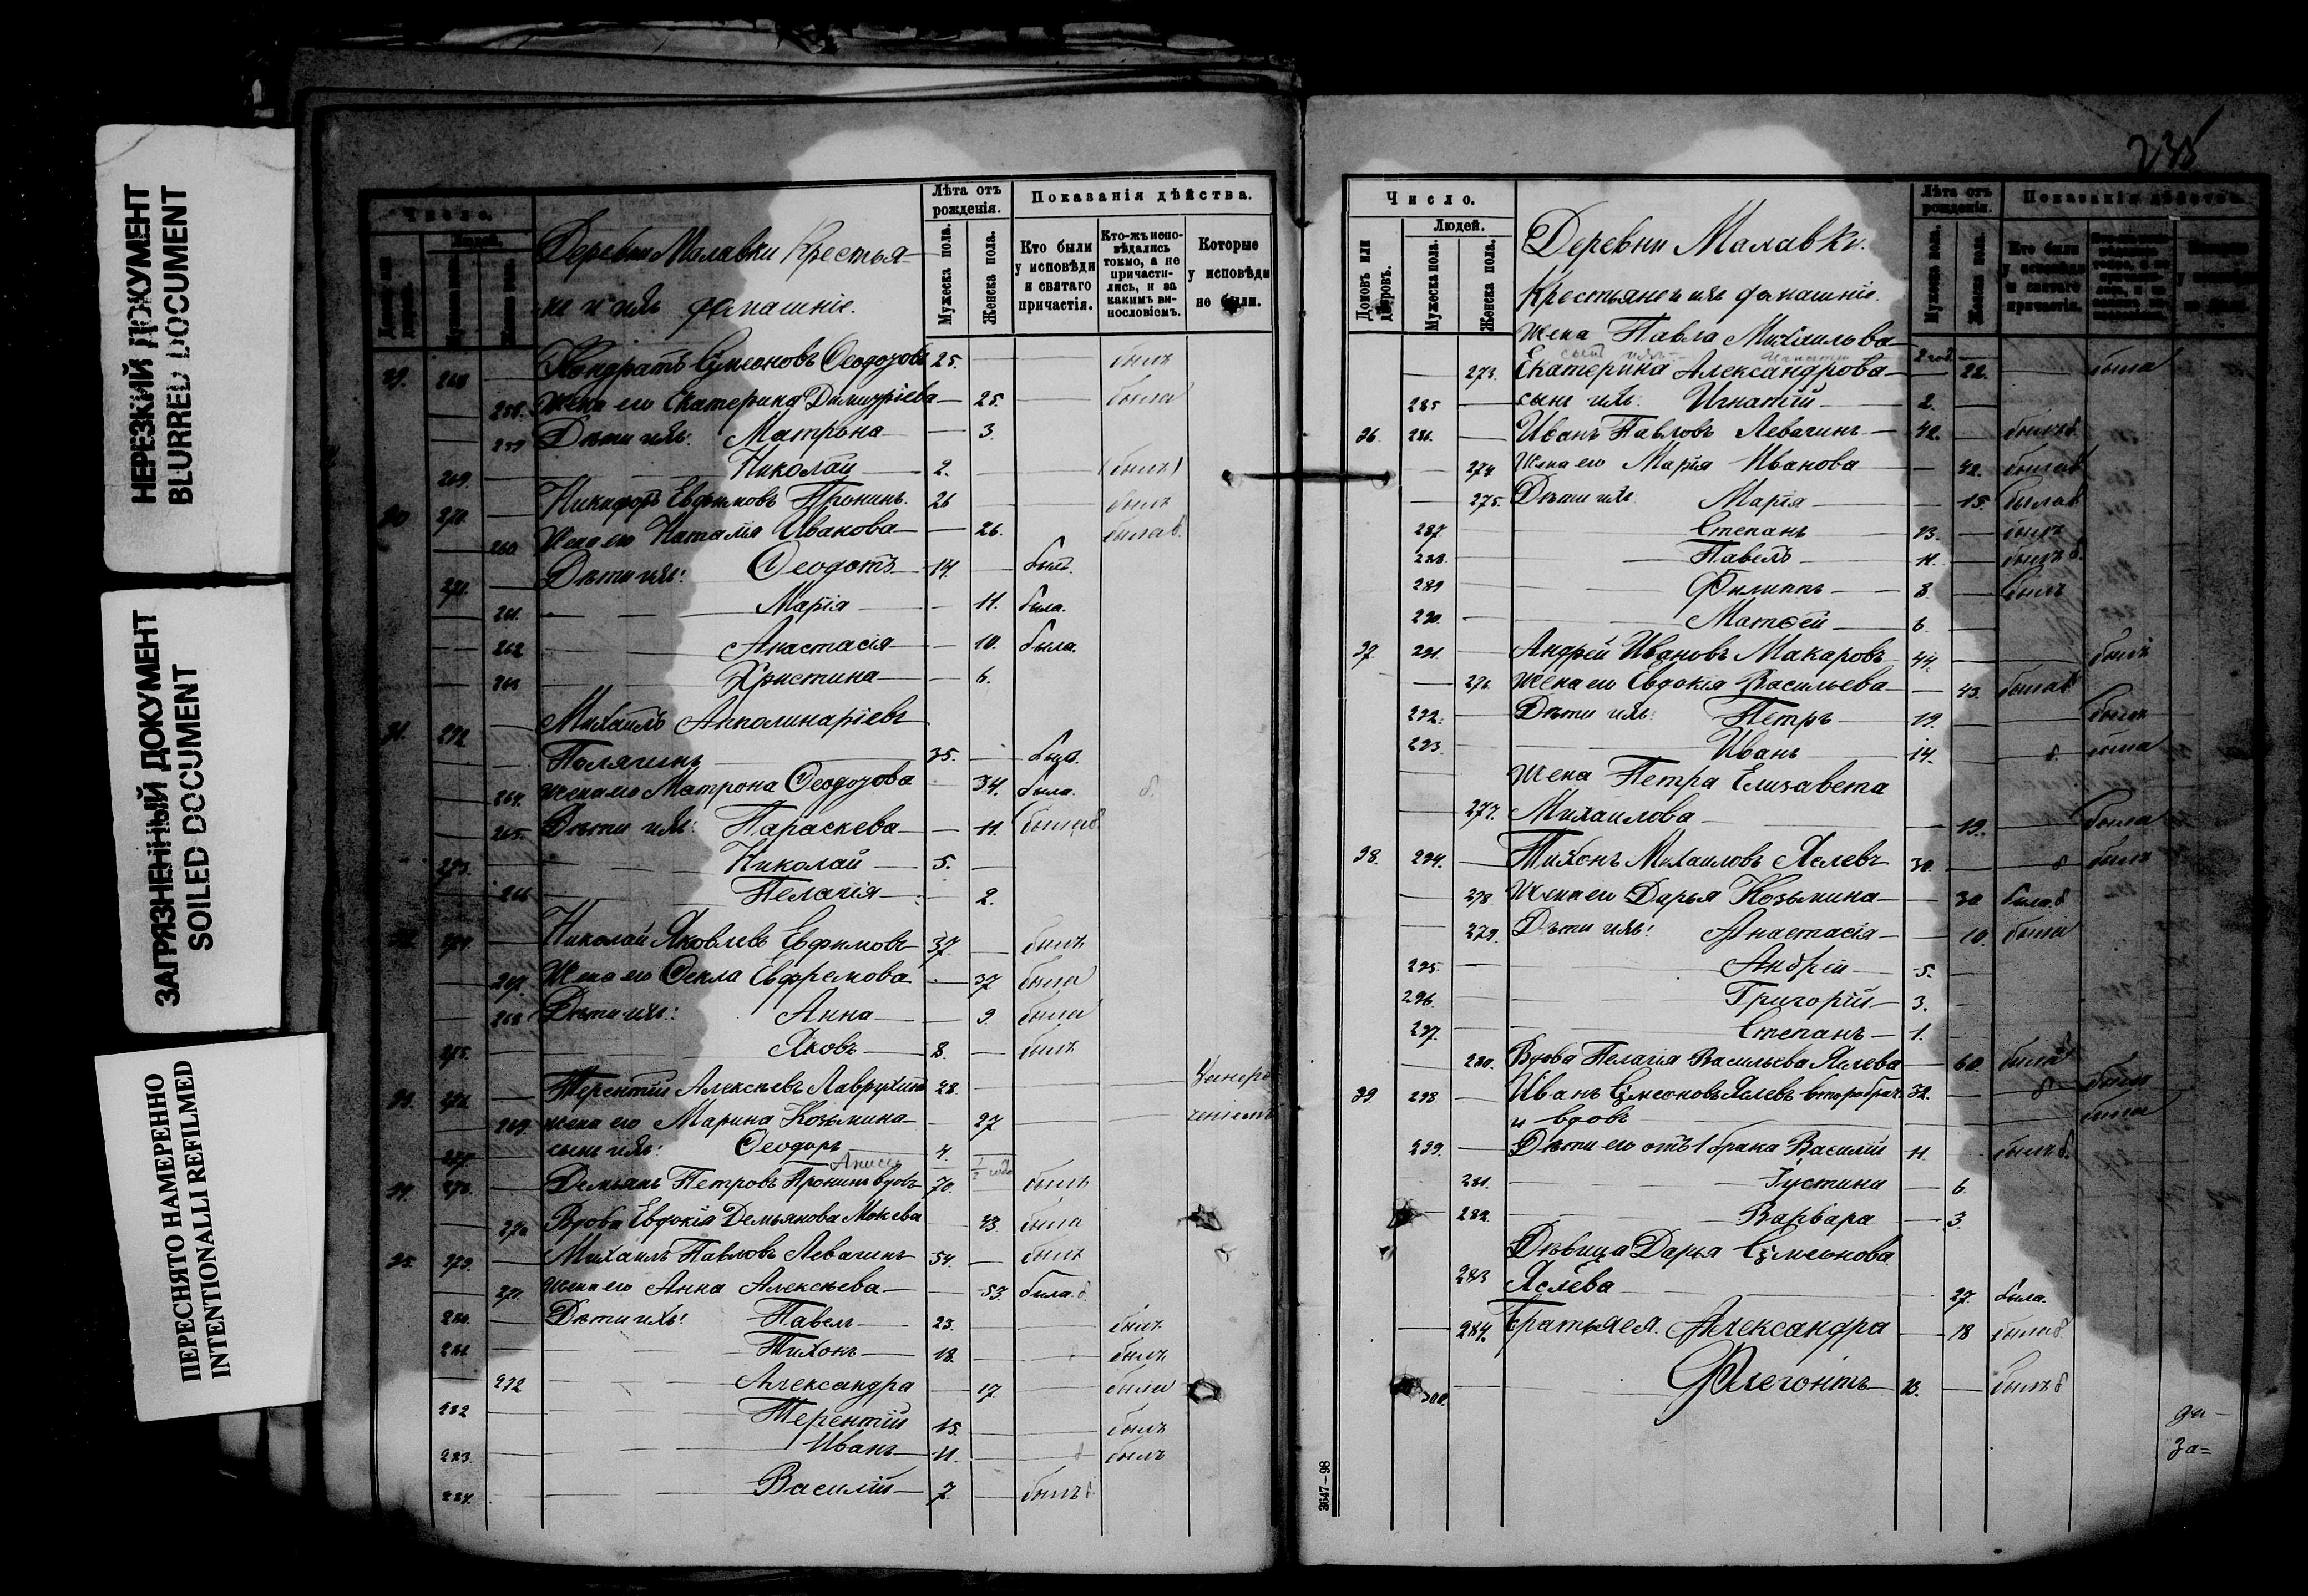 НЕРЕЗКИЙ ДОКУМЕНТ
BLURRED DOCUMENT
ЗАГРЯЗНЕННЫЙ ДОКУМЕНТ
SOILED DOCUMENT
ПЕРЕСНЯТО НАМЕРЕННО
INTENTIONALLI REFILMED
Число.
Людей.
Деревни Малавки Крестья-
не и ихъ домашніе.
Лѣта отъ рожденія.
Мужеска пола.
Женска пола.
Показанія дѣйства.
Кто были у исповѣди и святаго причастія.
Кто-жъ исповѣдались токмо, а не причастились, и за какимъ винословіемъ.
Которые у исповѣди не были.
29. 268 Кондратъ Сѵмеоновъ Ѳеодоровъ 25. былъ
258. Жена его Екатерина Димитріева 25. была
259 Дѣти ихъ: Матрона 3.
269. Николай 2. (былъ)
30 270. Никифоръ Евфимовъ Пронинъ. 26 былъ
260. Жена его Наталія Иванова 26. была б.
271. Дѣти ихъ: Ѳеодотъ 14. былъ.
261. Марія 11. была.
262 Анастасія 10. была.
263 Христина 6.
31. 272 Михаилъ Апполинаріевъ
35.
264. Жена его Матрона Ѳеодорова 34. была. б.
265. Дѣти ихъ: Параскева 11. была б
273. Николай 5.
266 Пелагія 2.
32. 274. Николай Яковлевъ Евфимовъ 37. былъ
267. Жена его Ѳекла Евфремова 37 была
268 Дѣти ихъ: Анна 9. была
275. Яковъ 8. былъ
33. 276 Терентій Алексѣевъ Лаврухинъ 28.
269. Жена его Марина Козьмина 27
277. сынъ ихъ: Ѳеодоръ 4.
34. 278. Демьянъ Петровъ Пронинъ вдовъ 70. былъ
270 Вдова Евдокія Демьянова 43 была
35. 279. Михаилъ Павловъ Левачинъ 54. былъ
271. Жена его Анна Алексѣева 53. была. б.
280. Дѣти ихъ: Павелъ 23. былъ
281. Тихонъ 18. былъ
272 Александра 17 была
282 Терентій 15. былъ
283. Иванъ 11. былъ
284. Василій 7 былъ б
235
Число.
Домовъ или дворовъ.
Людей.
Мужеска пола.
Женска пола.
Деревни Малавки.
Крестьяне и ихъ домашніе.
Лѣта отъ рожденія.
Мужеска пола.
Женска пола.
Показанія дѣйства.
Жена Павла Михаилова
273. Екатерина Александрова 22. была
285 сынъ ихъ: Игнатій 2.
36. 286. Иванъ Павловъ Левачинъ 42. былъ б
274 Жена его Марія Иванова 42. была б
275. Дѣти ихъ: Марія 15. была б
287. Степанъ 13. былъ
288. Павелъ 11. былъ б
289 Филиппъ 8 былъ
290. Матѳей 6.
37. 291. Андрей Ивановъ Макаровъ 44. былъ
276. Жена его Евдокія Васильева 43. была б
292. Дѣти ихъ: Петръ 19. былъ
293. Иванъ 14. б.
Жена Петра Елизавета
277. Михаилова 19. была
38. 294. Тихонъ Михаиловъ Яслевъ 30. б былъ
278. Жена его Дарья Козьмина 30 была б
279. Дѣти ихъ: Анастасія 10. была
295. Андрей 5.
296. Григорій 3.
297. Степанъ 1.
280. Вдова Пелагія Васильева Яслева 60. была б
39. 298. Иванъ Сѵмеоновъ Яслевъ второбрач. 32. б былъ
и вдовъ
299. Дѣти его отъ 1 брака Василій 11. былъ б.
281. Іустина 6.
282 Варвара 3.
Дѣвица Дарья Сѵмеонова
283 Яслева 27. была.
284. Братья ея. Александра 18 была б
300. Флегонтъ 13. былъ б
за=
3647—98